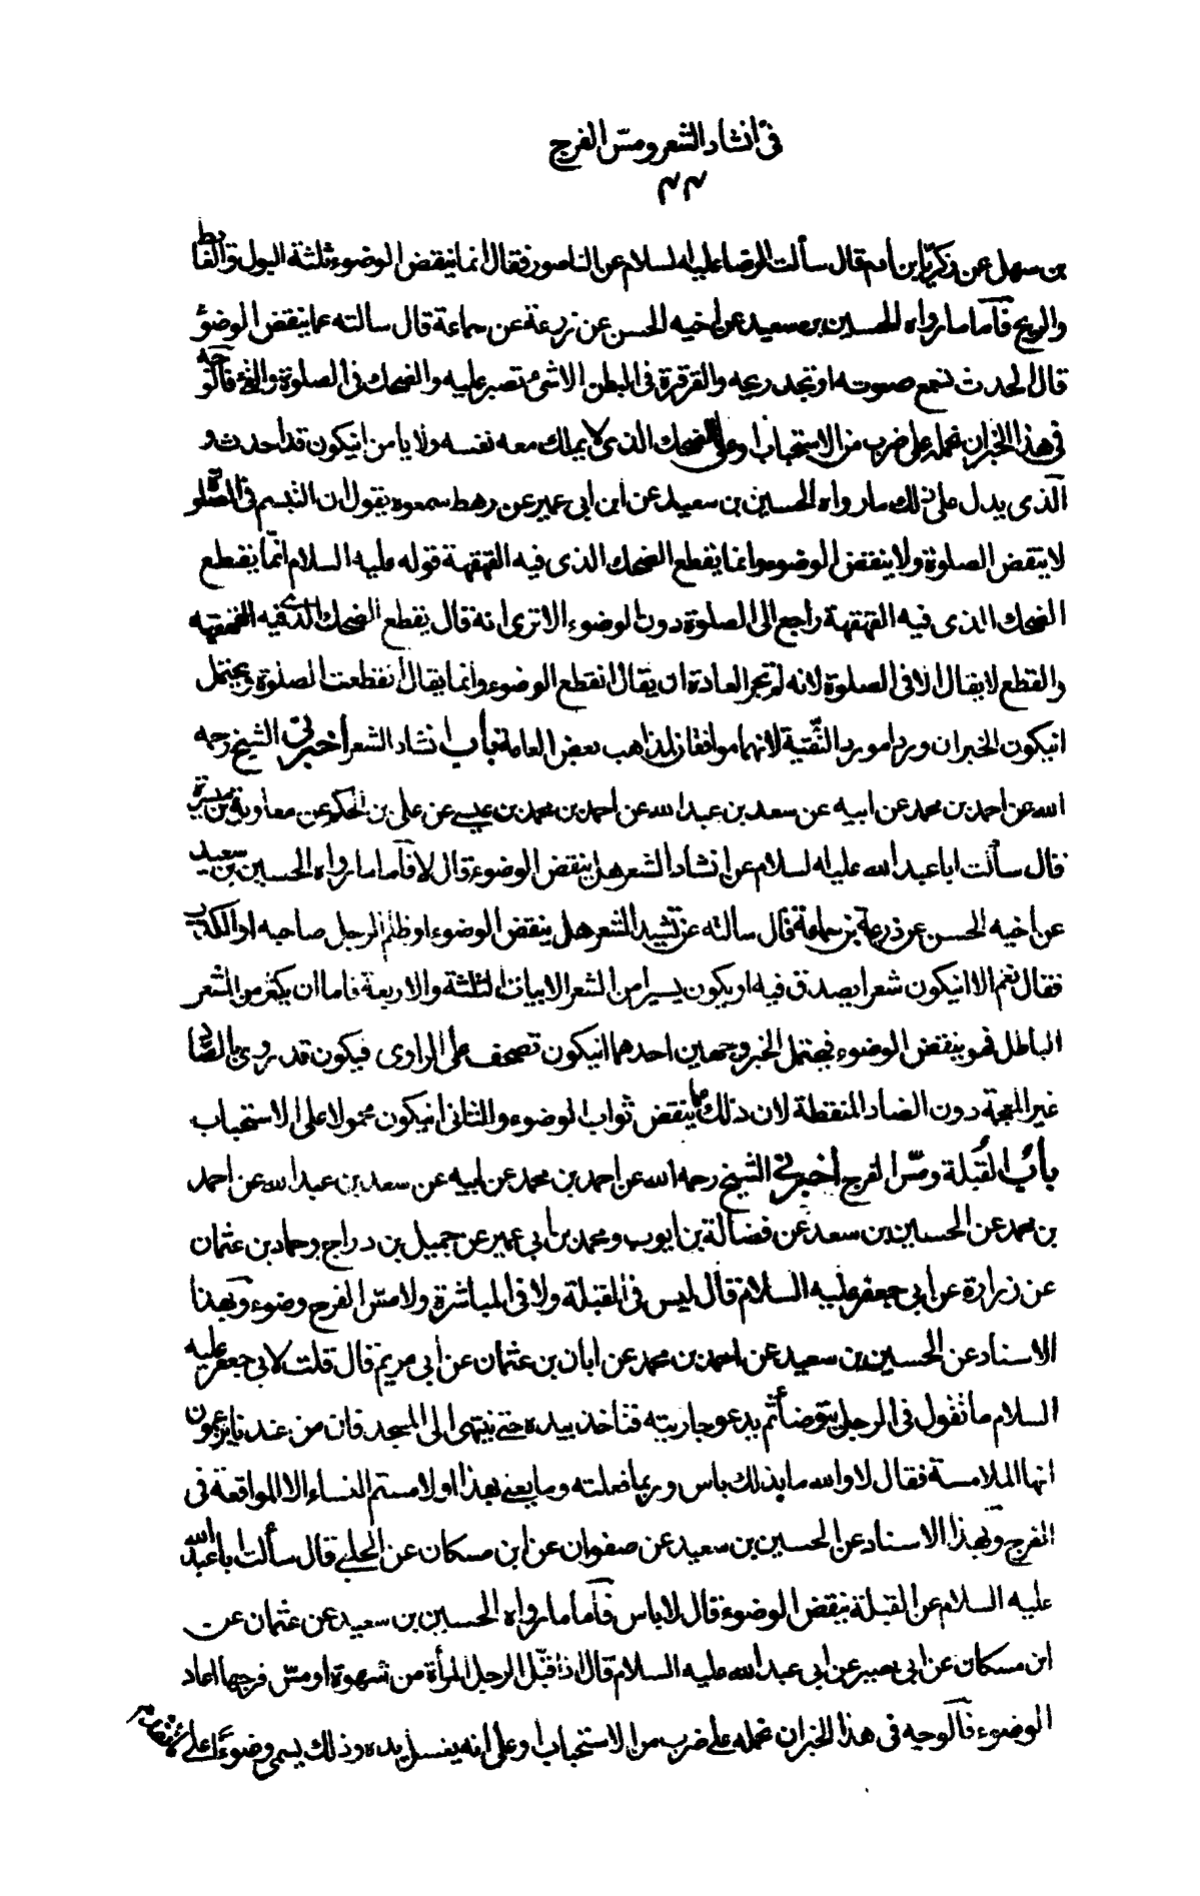 فى انشاد الشعر ومسّ الفرج
٤٣
بن سهل عن زكريّا بن ادم قال سألت الرضا عليه السلام عن الناصور فقال انما ينقض الوضوء ثلثة البول والغايط
والريح فأما ما رواه الحسين بن سعيد عن اخيه الحسن عن زرعة عن سماعة قال سالته عما ينقض الوضوء
قال الحدث تسمع صوته او تجد ريحه والقرقرة فى البطن الا شئ تصبر عليه والضحك فى الصلوة والقئ فالوجه
فى هذا الخبر ان نحمله على ضرب من الاستحباب او على الضحك الذى لا يملك معه نفسه ولا يامن ان يكون قد احدث و
الذى يدل على ذلك ما رواه الحسين بن سعيد عن ابن ابى عمير عن رهط سمعوه يقول ان التبسم فى الصلوة
لا ينقض الصلوة ولا ينقض الوضوء وانما يقطع الضحك الذى فيه القهقهة قوله عليه السلام انّما يقطع
الضحك الذى فيه القهقهة راجع الى الصلوة دون الوضوء الا ترى انه قال يقطع الضحك الذى فيه القهقهه
والقطع لا يقال الا فى الصلوة لانه لم تجر العادة ان يقال انقطع الوضوء وانما يقال انقطعت الصلوة ويحتمل
ان يكون الخبران وردا مورد التّقية لانهما موافقان لمذاهب بعض العامة باب انشاد الشعر أخبرنى الشيخ رحمه
الله عن احمد بن محمد عن ابيه عن سعد بن عبد الله عن احمد بن محمد بن عيسى عن على بن الحكم عن معاوية بن ميسرة
قال سألت ابا عبد الله عليه السلام عن انشاد الشعر هل ينقض الوضوء قال لا فأما ما رواه الحسين بن سعيد
عن اخيه الحسن عن زرعة عن سماعة قال سالته عن نشيد الشعر هل ينقض الوضوء او ظلم الرجل صاحبه او الكذب
فقال نعم الا ان يكون شعرا يصدق فيه او يكون يسيرا من الشعر الابيات الثلثة والاربعة فاما ان يكثر من الشعر
الباطل فهو ينقض الوضوء فيحتمل الخبر وجهين احدهما ان يكون تصحف على الراوى فيكون قد روى بالصاد
غير المعجمة دون الضاد المنقطة لان ذلك مما ينقض ثواب الوضوء والثانى ان يكون محمولا على الاستحباب
باب القُبلة ومسّ الفرج أخبرنى الشيخ رحمه الله عن احمد بن محمد عن ابيه عن سعد بن عبد الله عن احمد
بن محمد عن الحسين بن سعيد عن فضالة بن ايوب ومحمد بن أبى عمير عن جميل بن دراج وحماد بن عثمان
عن زرارة عن أبى جعفر عليه السلام قال ليس فى القبلة ولا فى المباشرة ولا مسّ الفرج وضوء وبهذا
الاسناد عن الحسين بن سعيد عن احمد بن محمد عن ابان بن عثمان عن أبى مريم قال قلت لابى جعفر عليه
السلام ما تقول فى الرجل يتوضأ ثم يدعو جاريته فتاخذ بيده حتى ينتهى الى المسجد فان من عندنا يزعمون
انها الملامسة فقال لا والله ما بذلك باس وربما فعلته وما يعنى بهذا او لامستم النساء الا المواقعة فى
الفرج وبهذا الاسناد عن الحسين بن سعيد عن صفوان عن ابن مسكان عن الحلبى قال سألت ابا عبد الله
عليه السلام عن القبلة ينقض الوضوء قال لا باس فأما ما رواه الحسين بن سعيد عن عثمان عن
ابن مسكان عن ابى بصير عن ابى عبد الله عليه السلام قال اذا قبّل الرجل المرأة من شهوة او مسّ فرجها اعاد
الوضوء فالوجه فى هذا الخبر ان نحمله على ضرب من الاستحباب او على انه يغسل يده وذلك يسمى وضوءا على